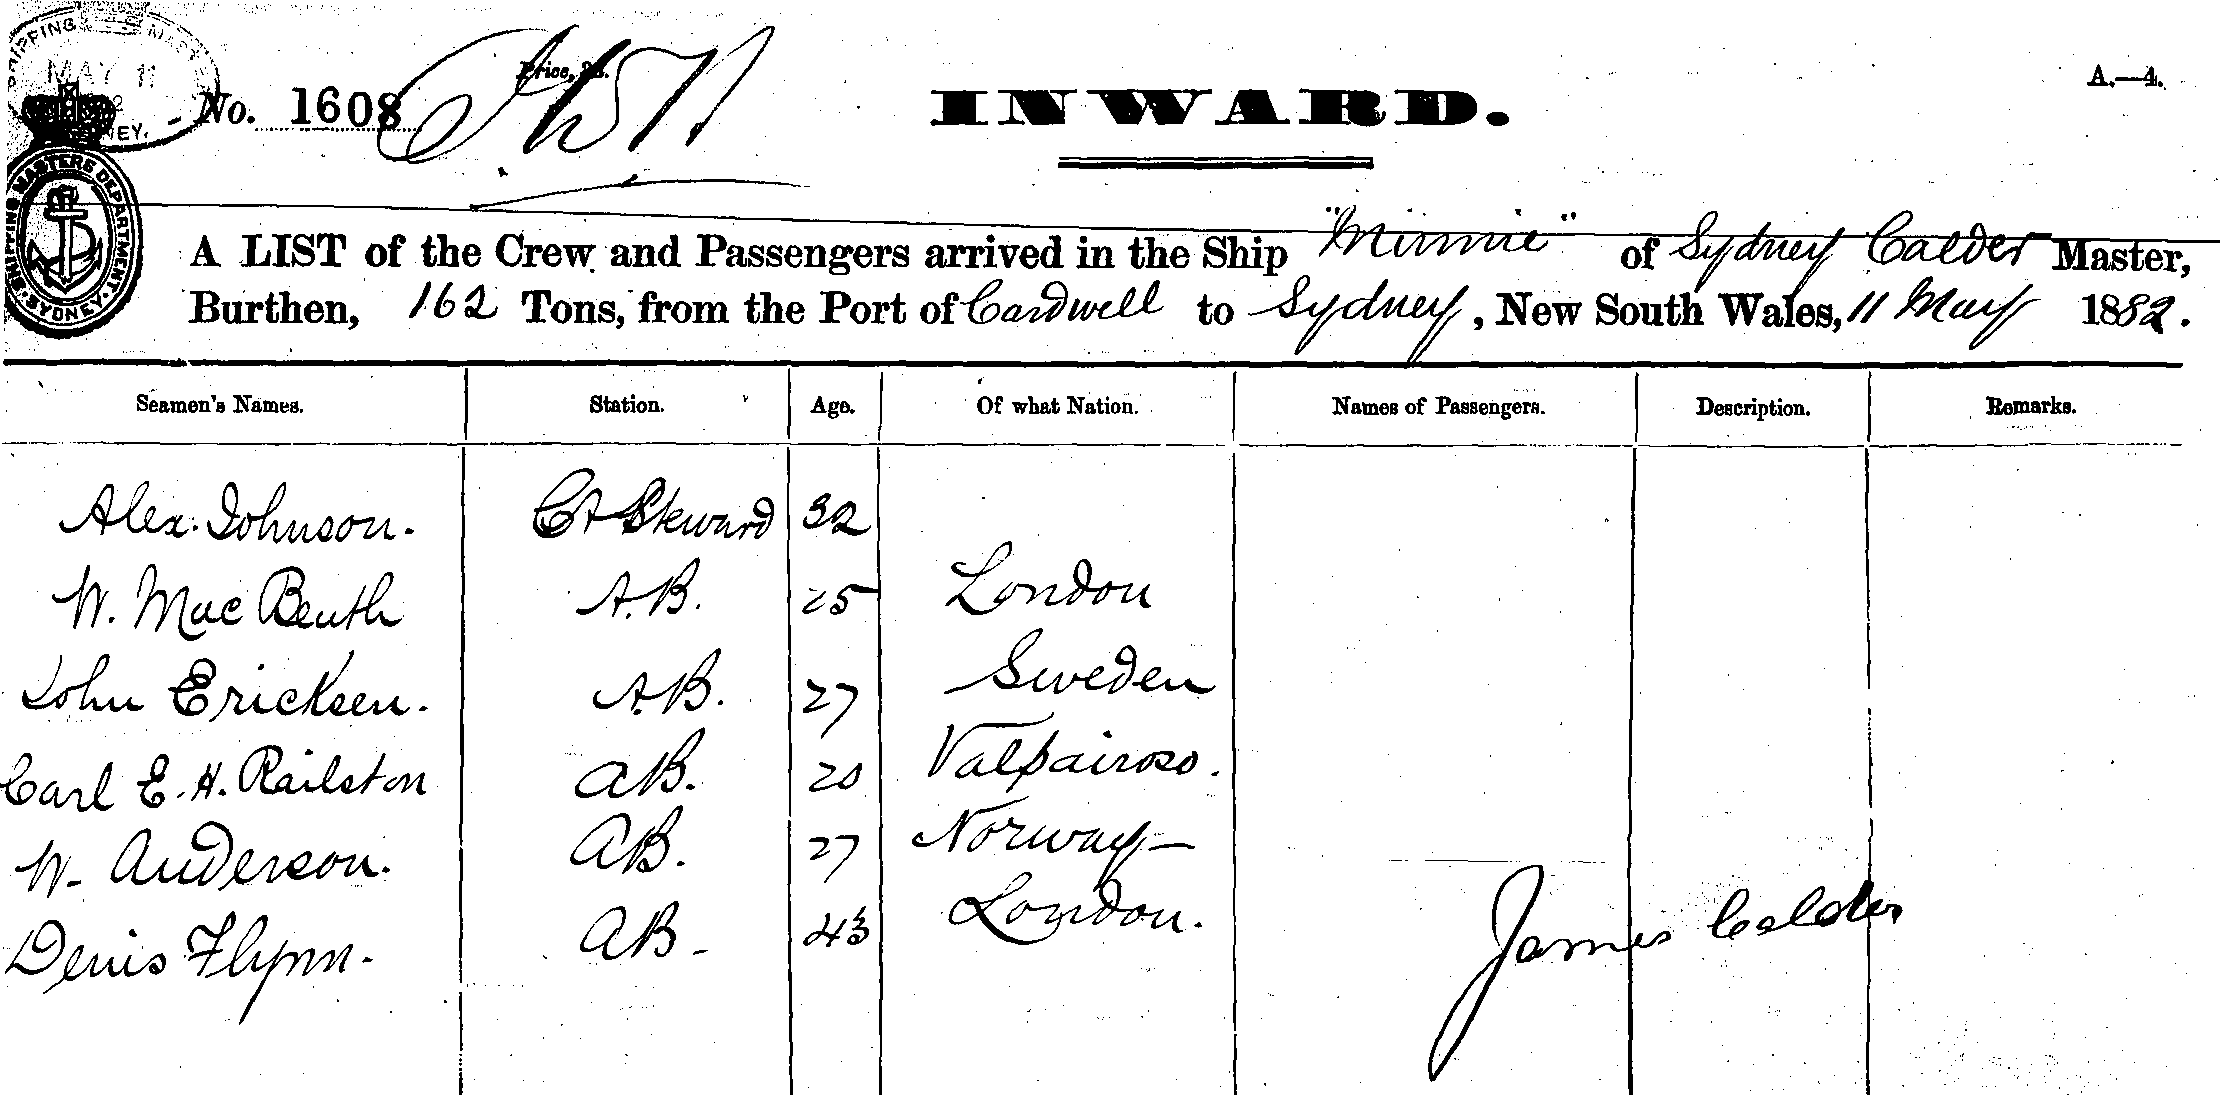 SHIPPING MASTER
MAY 11
SYDNEY.
Price, 2s.
No. 1608
INWARD.
A.—4.
SHIPPING MASTERS DEPARTMENT. SYDNEY.
A LIST of the Crew and Passengers arrived in the Ship "Minnie" of Sydney Calder Master,
Burthen, 162 Tons, from the Port of Cardwell to Sydney, New South Wales, 11 May 1882.
Seamen's Names. Station. Age. Of what Nation. Names of Passengers. Description. Remarks.
Alex. Johnson. Steward 32
W. Mac Beuth A.B. 25 London
John Ericksen. A.B. 27 Sweden
Carl E. H. Railston AB. 20 Valpairoso.
W. Anderson. AB. 27 Norway
Denis Flynn. AB 43 London.
James Calder